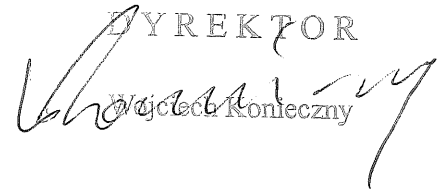 DYREKTOR
Wojciech Konieczny